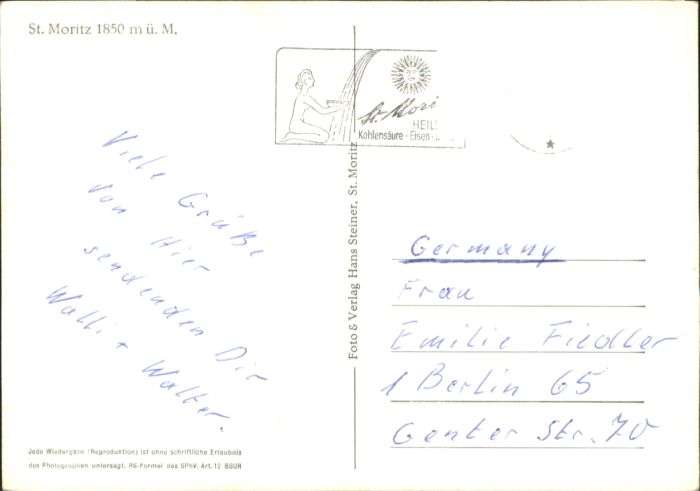 St. Moritz 1850 m ü. M.
St. Mori
HEIL
Kohlensäure - Eisen -
Viele Grüße
von Hier
sendenden Dir
Walli + Walter.
Foto & Verlag Hans Steiner, St. Moritz
Germany
Frau
Emilie Fiedler
1 Berlin 65
Genter Str. 70
Jede Wiedergabe (Reproduktion) ist ohne schriftliche Erlaubnis
des Photographen untersagt. RG-Formel des SPHV, Art. 12 BGUR